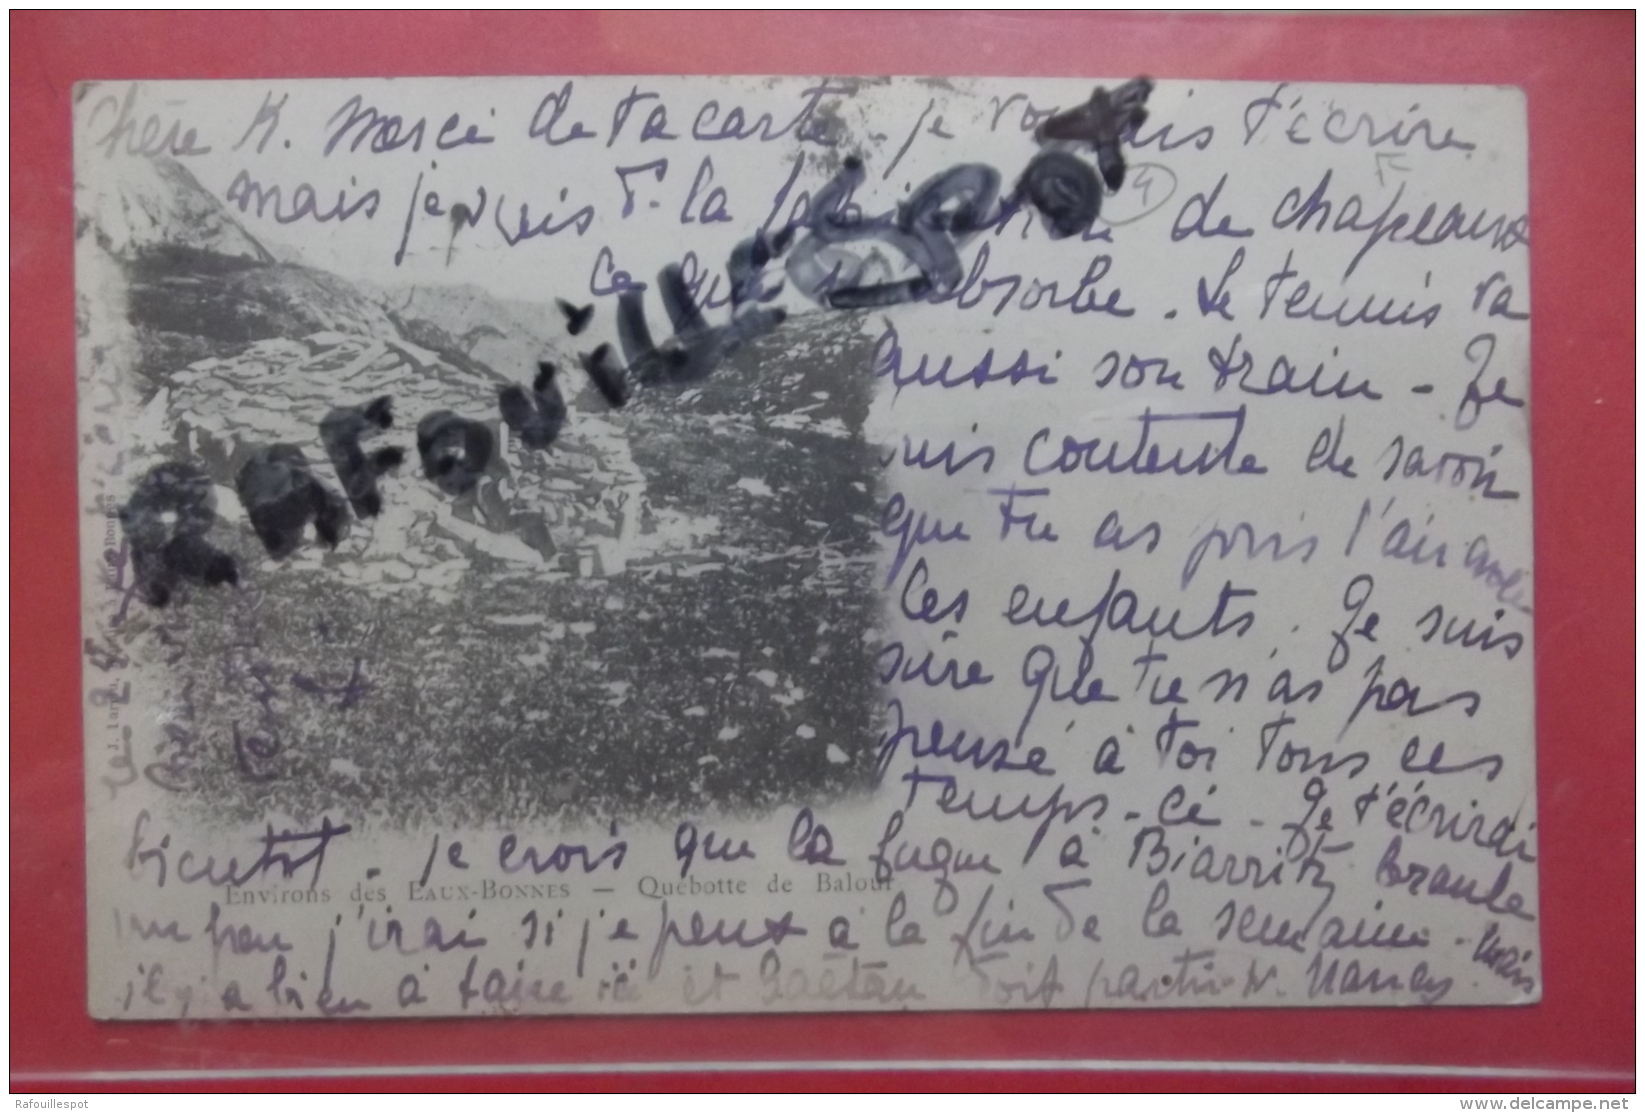 Chère K. Merci de ta carte. je voulais t'écrire
mais je suis ds. la fabrication de chapeaux
ce qui m'absorbe. Le tennis va
aussi son train - Je
suis contente de savoir
que tu as pris l'air avec
les enfants. Je suis
sûre que tu n'as pas
pensé à toi tous ces
temps-ci - Je t'écrirai
bientôt. je crois que la fugue à Biarritz branle
un peu j'irai si je peux à la fin de la semaine. mais
il y a bien à faire ici et Gaëtan doit partir Nancy.
RaFouillESpot
4
Environs des EAUX-BONNES — Québotte de Balour
Rafouillespot
www.delcampe.net